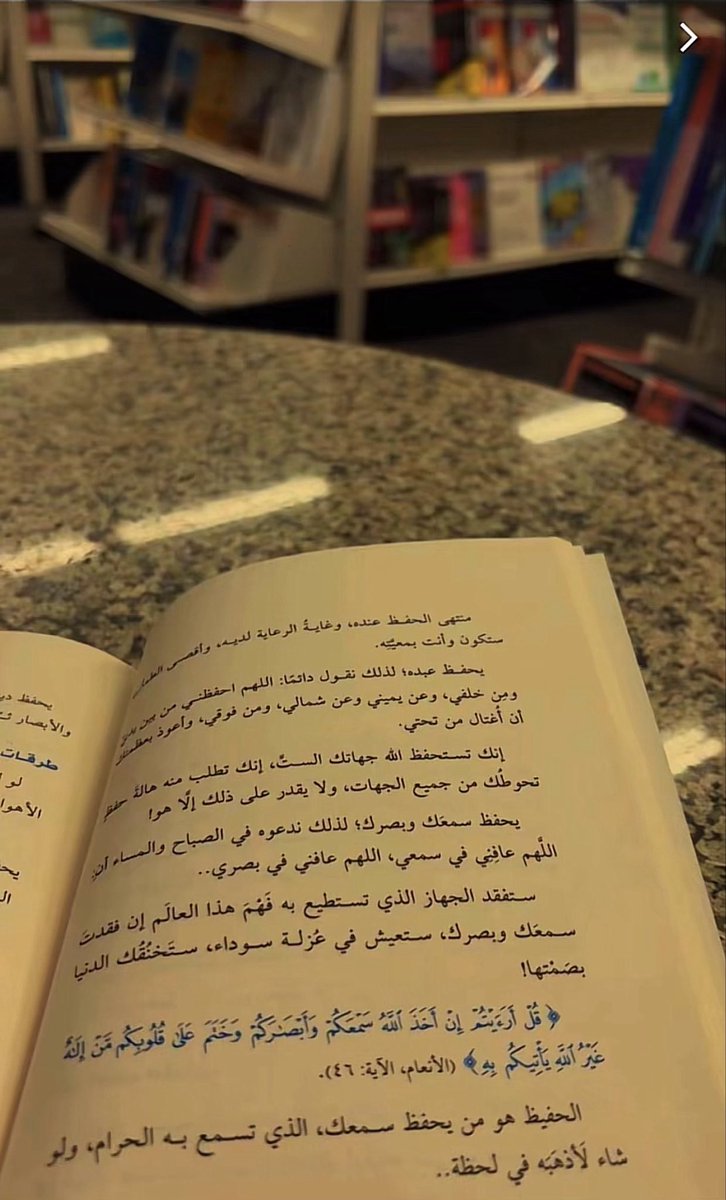 منتهى الحفظ عنده، وغايةُ الرعاية لديه، وأقصى
ستكون وأنت بمعيَّتِه.
يحفظ عبده؛ لذلك نقول دائمًا: اللهم احفظني من بين
ومِن خلفي، وعن يميني وعن شمالي، ومن فوقي، وأعوذ
أن أُغتال من تحتي.
إنك تستحفظ الله جهاتك الستَّ، إنك تطلب منه هالةَ حفظٍ
تحوطُك من جميع الجهات، ولا يقدر على ذلك إلَّا هو!
يحفظ سمعَك وبصرك؛ لذلك ندعوه في الصباح والمساء أن:
اللَّهم عافِنِي في سمعي، اللهم عافني في بصري..
ستفقد الجهاز الذي تستطيع به فَهْمَ هذا العالَم إن فقدتَ
سمعَك وبصرك، ستعيش في عُزلة سوداء، ستَخنُقُك الدنيا
بصَمْتها!
﴿قُلْ أَرَءَيْتُمْ إِنْ أَخَذَ ٱللَّهُ سَمْعَكُمْ وَأَبْصَـٰرَكُمْ وَخَتَمَ عَلَىٰ قُلُوبِكُم مَّنْ إِلَـٰهٌ
غَيْرُ ٱللَّهِ يَأْتِيكُم بِهِ﴾ (الأنعام، الآية: ٤٦).
الحفيظ هو من يحفظ سمعك، الذي تسمع به الحرام، ولو
شاء لَأذهَبَه في لحظة..
يحفظ
والأبصار
طرقات
لو
الأهوا